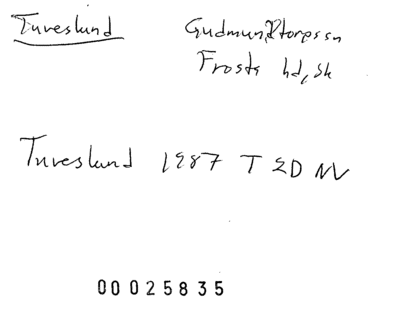 Tuveslund Gudmuntorps sn
Frosta hd, Sk
Tuveslund 1987 T 2D NV
00025835